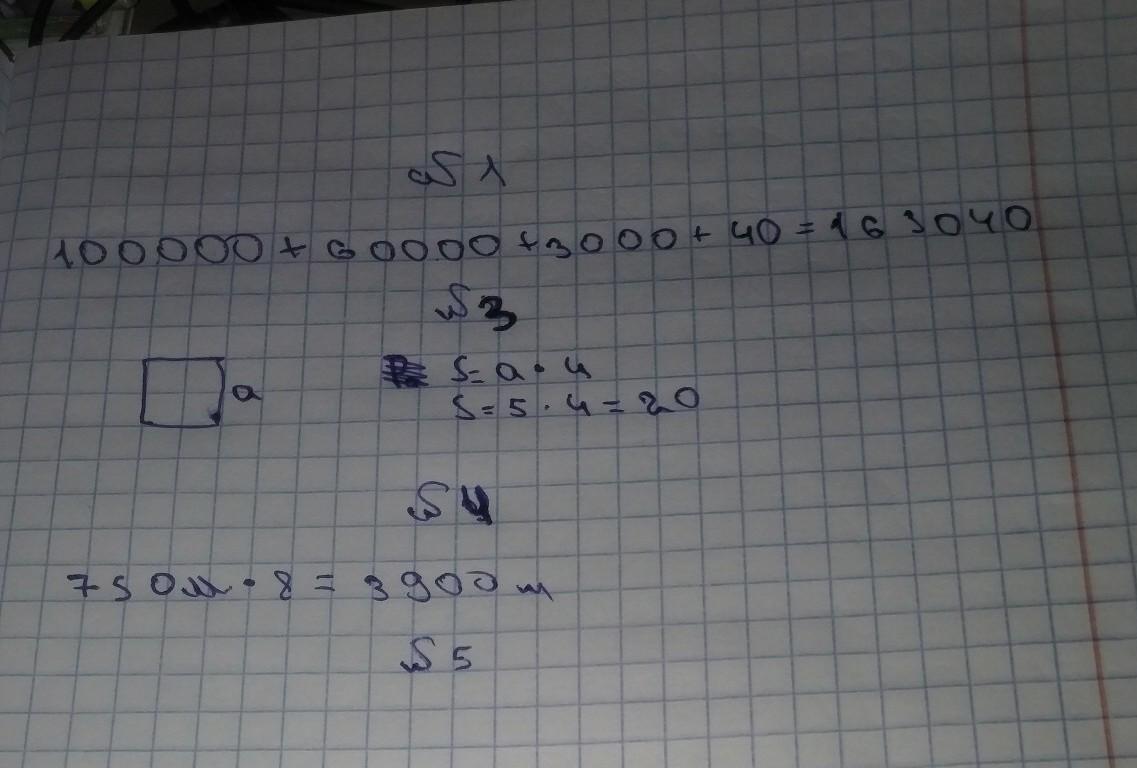 № 1
100000 + 60000 + 3000 + 40 = 163040
№ 3
a
S = a · 4
S = 5 · 4 = 20
№ 4
750 м · 8 = 3900 м
№ 5